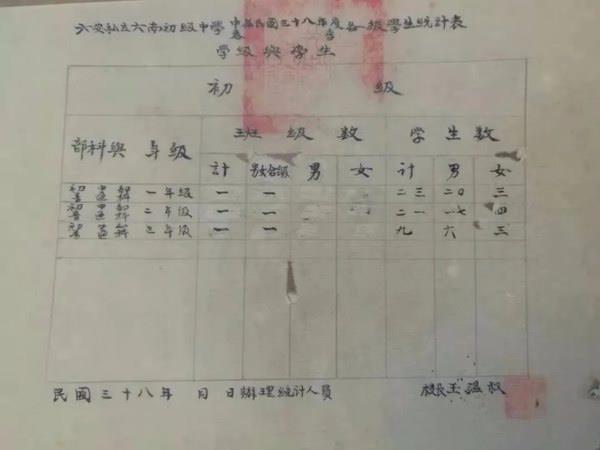 六安私立六南初級中學中華民國三十八年度春季各級學生統計表
學級與學生
初 級
部科與年級 班級數 學生數
計 男女合級 男 女 計 男 女
初中部普通科 一年級 一 一 二三 二〇 三
初中部普通科 二年級 一 一 二一 一七 四
普通科 三年級 一 一 九 六 三
民國三十八年 月 日辦理統計人員 校長王溫叔